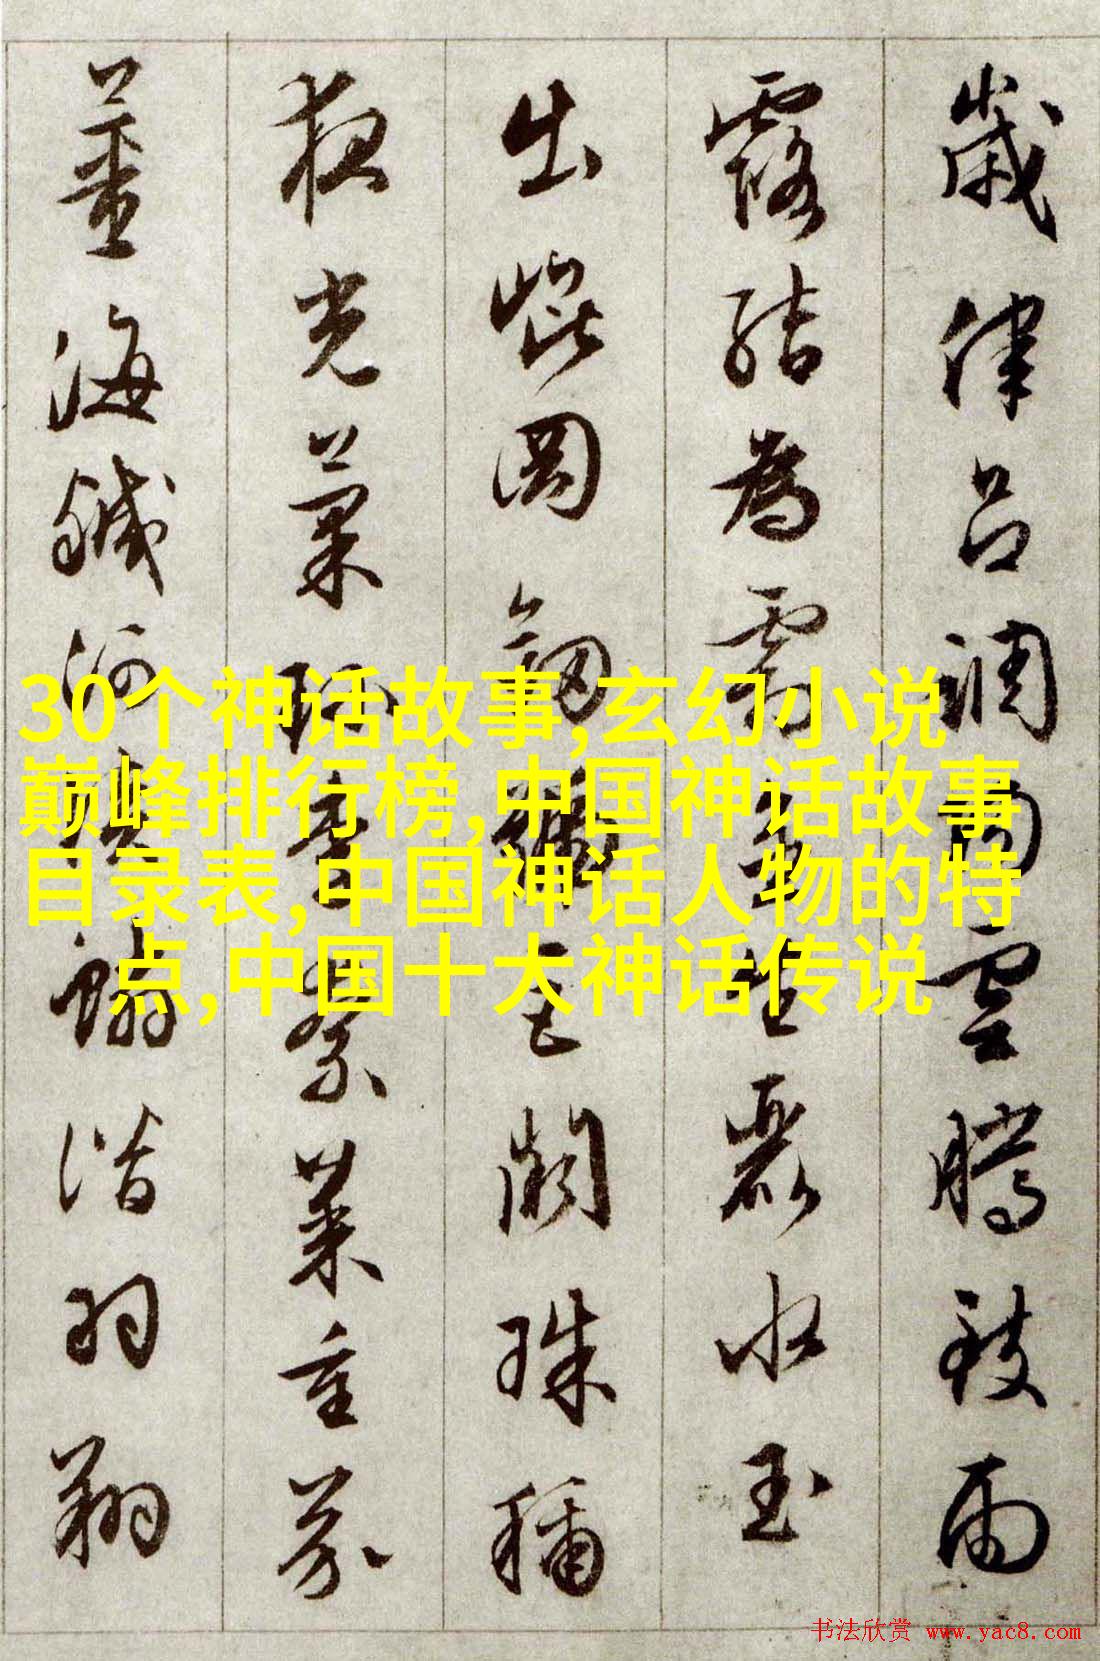 歲律呂調陽雲騰致雨
露結為霜金生麗水玉
出崐岡劍號巨闕珠稱
夜光菓珎李柰菜重芥
薑海醎河淡鱗潛羽翔
30个神话故事,玄幻小说
巅峰排行榜,中国神话故事
目录表,中国神话人物的特
点,中国十大神话传说
书法欣赏 www.yac8.com